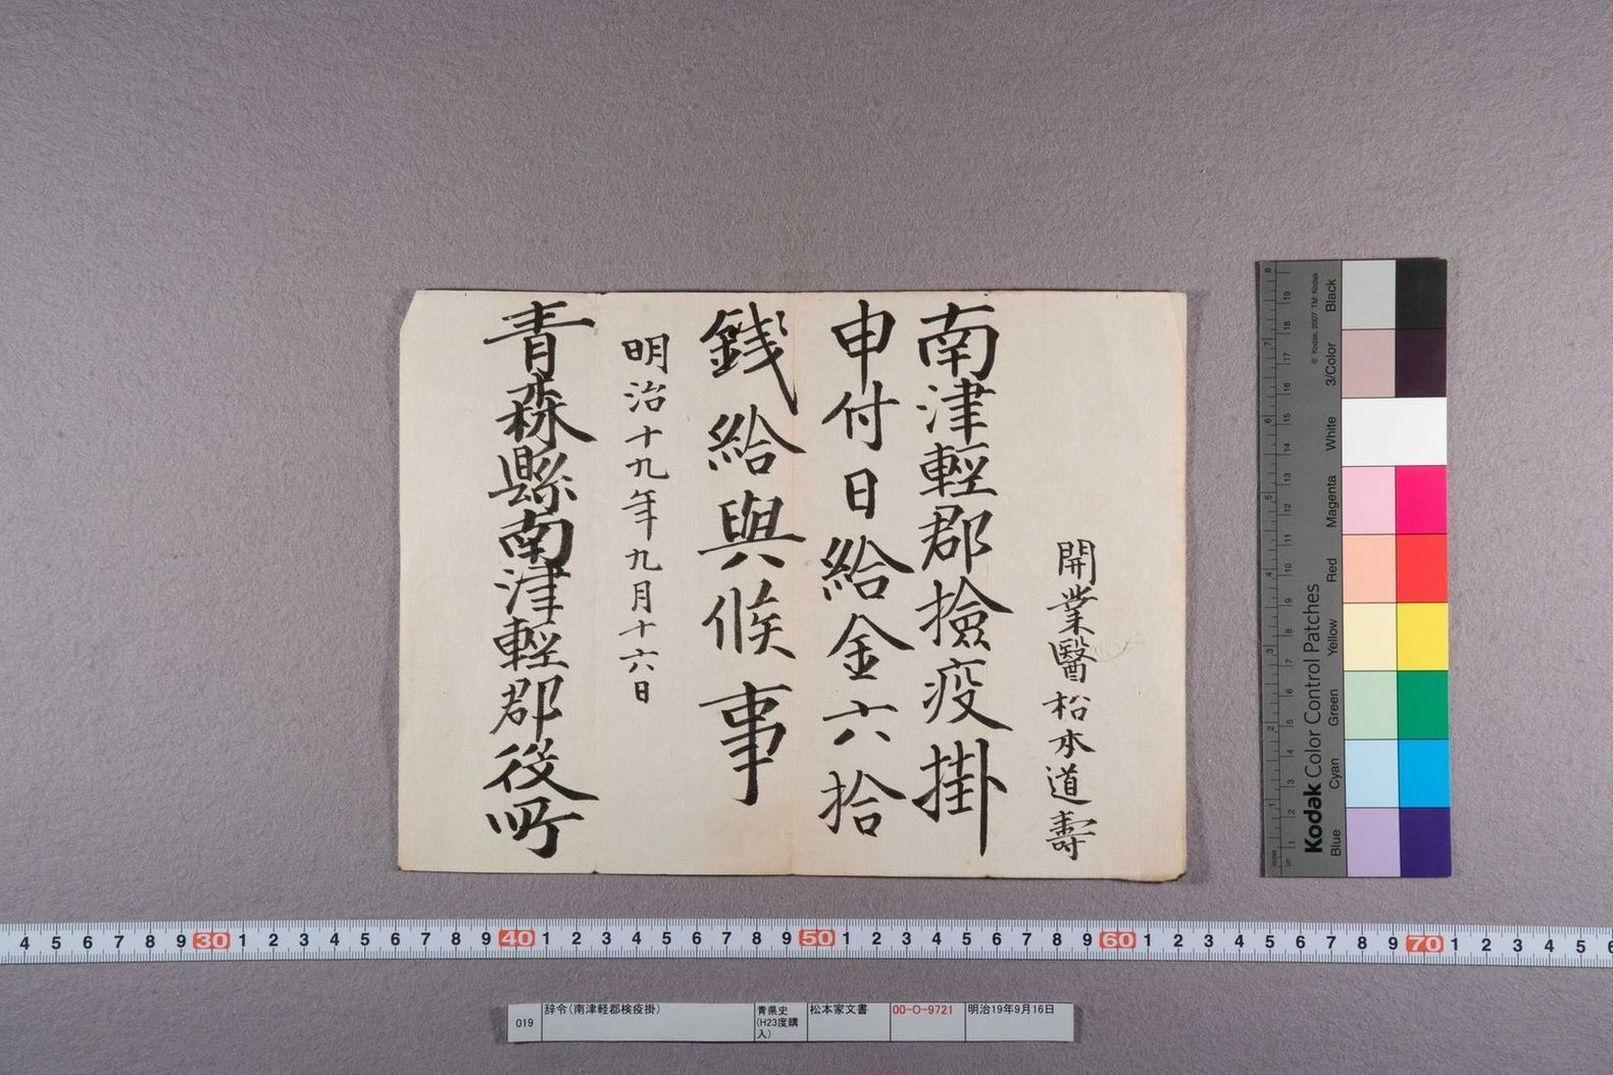 開業醫松本道壽
南津輕郡撿疫掛
申付日給金六拾
銭給與候事
明治十九年九月十六日
青森縣南津輕郡役所
Kodak Color Control Patches
© Kodak, 2007 TM: Kodak
Blue Cyan Green Yellow Red Magenta White 3/Color Black
4 5 6 7 8 9 30 1 2 3 4 5 6 7 8 9 40 1 2 3 4 5 6 7 8 9 50 1 2 3 4 5 6 7 8 9 60 1 2 3 4 5 6 7 8 9 70 1 2 3 4 5 6
019 辞令(南津軽郡検疫掛) 青県史(H23度購入) 松本家文書 00-O-9721 明治19年9月16日